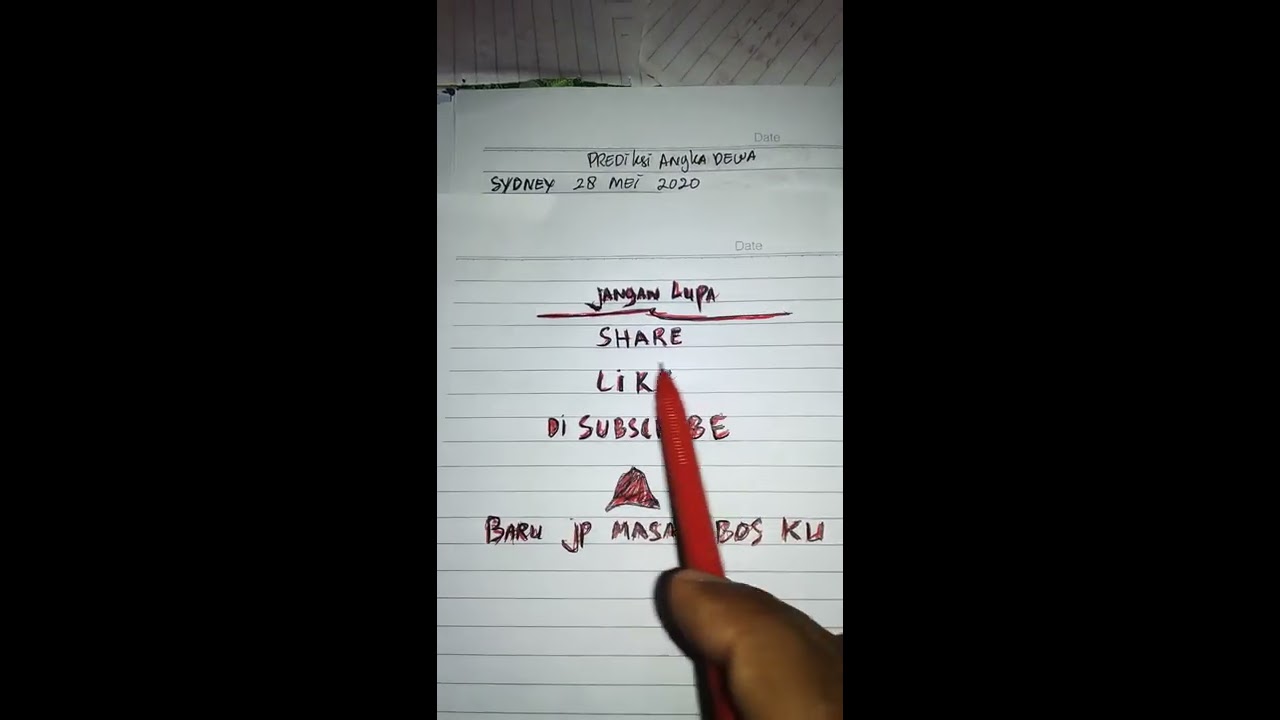 Date
PREDiksi ANgkA DEWA
SYDNEY 28 MEi 2020
Date
jANgAN LupA
SHARE
LiKE
Di SUBSCRIBE
BARU jP BOS KU